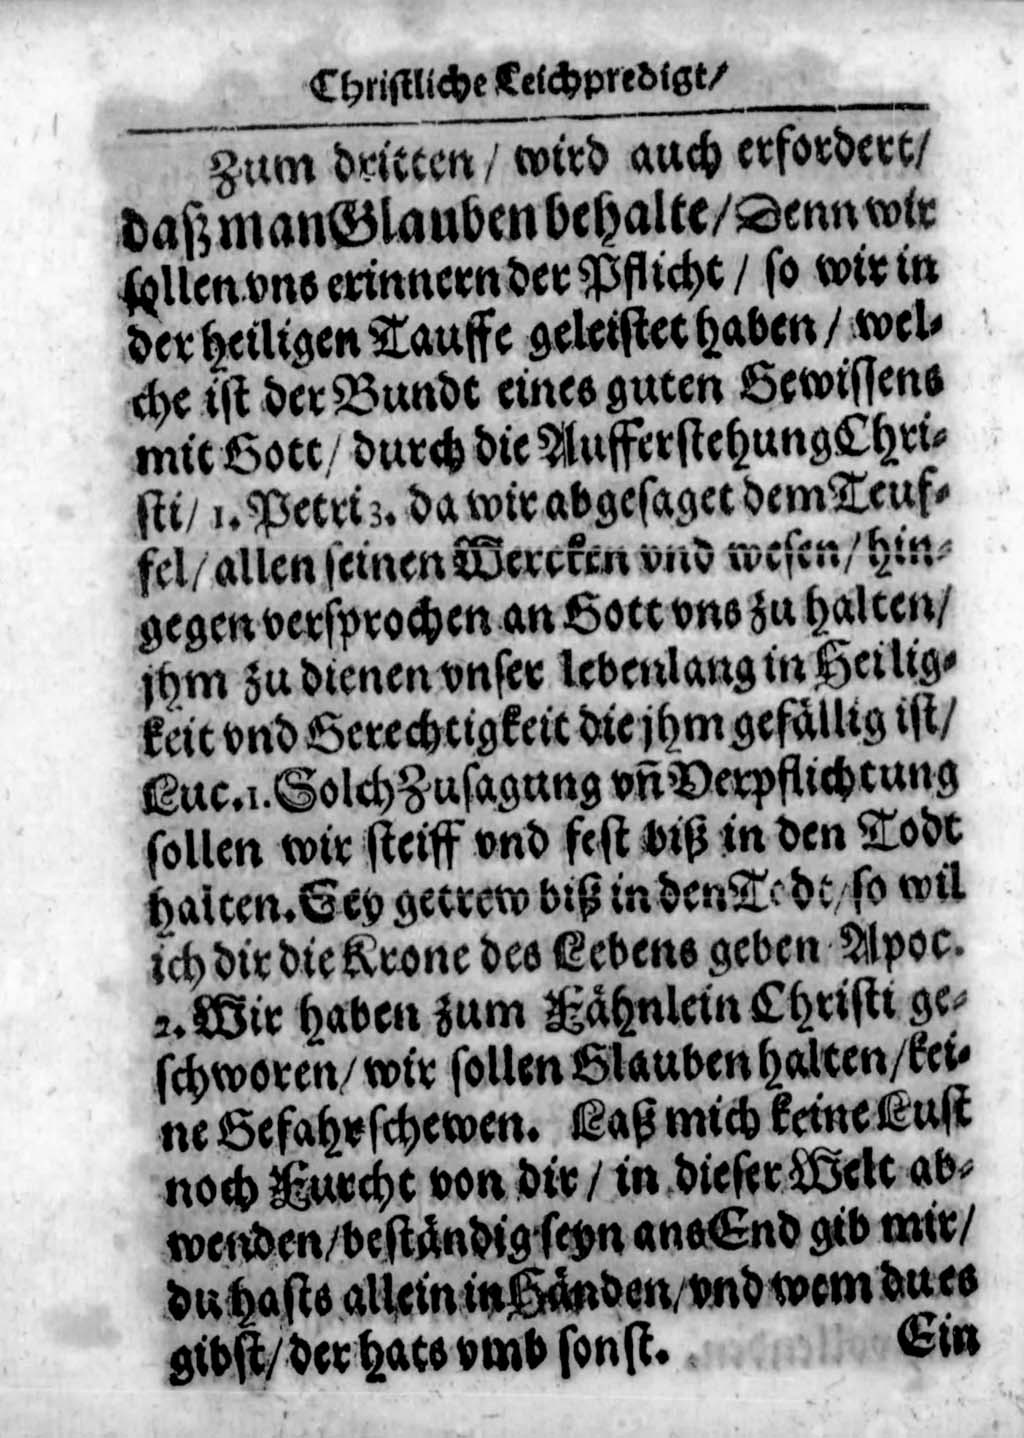 Christliche Leichpredigt/
Zum dritten / wird auch erfordert/
daß man Glauben behalte/ Denn wir
sollen vns erinnern der Pflicht / so wir in
der heiligen Tauffe geleistet haben / wel-
che ist der Bundt eines guten Gewissens
mit Gott/ durch die Aufferstehung Chri-
sti/ 1. Petri 3. da wir abgesaget dem Teuf-
fel/ allen seinen Wercken vnd wesen/ hin-
gegen versprochen an Gott vns zu halten/
jhm zu dienen vnser lebenlang in Heilig-
keit vnd Gerechtigkeit die jhm gefällig ist/
Luc. 1. Solch Zusagung vñ Verpflichtung
sollen wir steiff vnd fest biß in den Todt
halten. Sey getrew biß in den Todt/ so wil
ich dir die Krone des Lebens geben Apoc.
2. Wir haben zum Fähnlein Christi ge-
schworen/ wir sollen Glauben halten/ kei-
ne Gefahr schewen. Laß mich keine Lust
noch Furcht von dir / in dieser Welt ab-
wenden/ beständig seyn ans End gib mir/
du hasts allein in Händen/ vnd wem du es
gibst/ der hats vmb sonst.
Ein